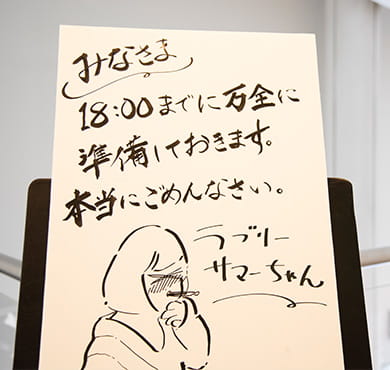 みなさま
18:00までに万全に
準備しておきます。
本当にごめんなさい。
ラブリー
サマーちゃん